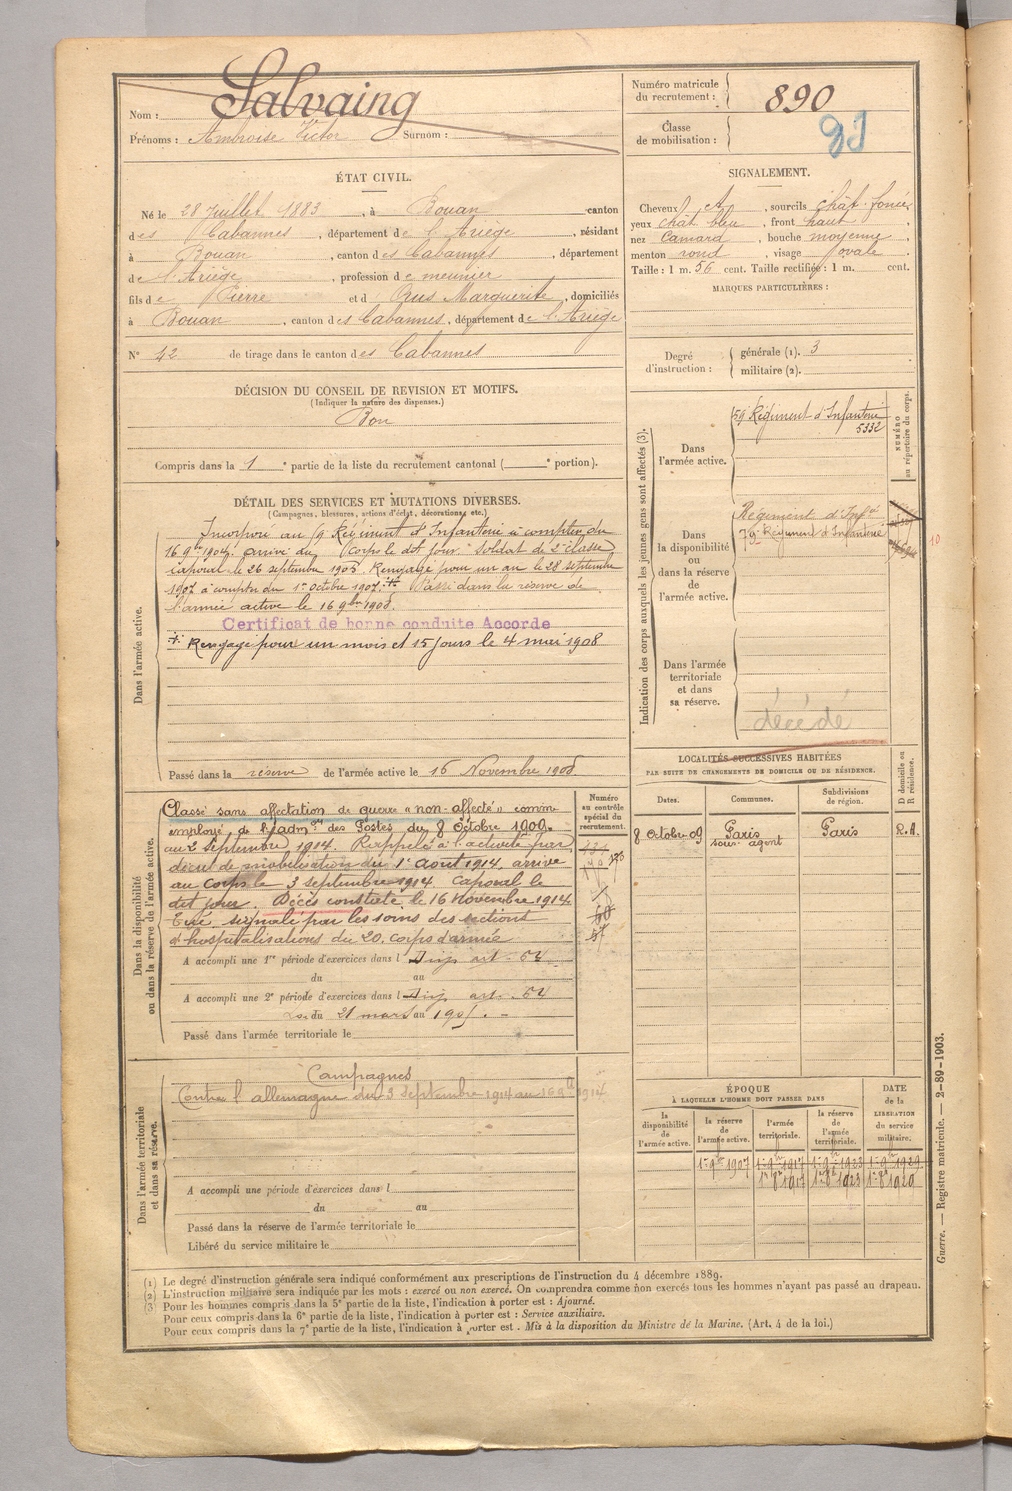 Nom : Salvaing
Prénoms : Ambroise Victor Surnom :
Numéro matricule du recrutement : 890
Classe de mobilisation :
ÉTAT CIVIL.
Né le 28 Juillet 1883, à Bouan canton
des Cabannes, département de l'Ariège, résidant
à Bouan, canton des Cabannes, département
de l'Ariège, profession de meunier
fils de Pierre et d Rus Marguerite, domiciliés
à Bouan, canton des Cabannes, département de l'Ariège
N° 42 de tirage dans le canton des Cabannes
SIGNALEMENT.
Cheveux, sourcils chat. foncé,
yeux chât bleu, front haut,
nez Camard, bouche moyenne,
menton rond, visage ovale
Taille : 1 m. 56 cent. Taille rectifiée : 1 m. cent.
MARQUES PARTICULIÈRES :
Degré d'instruction : générale (1). 3
militaire (2).
DÉCISION DU CONSEIL DE REVISION ET MOTIFS.
(Indiquer la nature des dispenses.)
Bon
Compris dans la 1e partie de la liste du recrutement cantonal ( e portion).
DÉTAIL DES SERVICES ET MUTATIONS DIVERSES.
(Campagnes, blessures, actions d'éclat, décorations, etc.)
Dans l'armée active.
Incorporé au 59 Régiment d'Infanterie à compter du
16 9bre 1904. arrivé au Corps le dit jour. Soldat de 2e classe
caporal le 26 septembre 1905. Rengagé pour un an le 28 septembre
1907 à compter du 1er octobre 1907. Passé dans la réserve de
l'armée active le 16 9bre 1908.
Certificat de bonne conduite Accordé
Rengagé pour un mois et 15 jours le 4 mai 1908
Passé dans la réserve de l'armée active le 16 Novembre 1908.
Indication des corps auxquels les jeunes gens sont affectés (3).
NUMÉRO au répertoire du corps.
Dans l'armée active.
59e Régiment d'Infanterie
5332
Dans la disponibilité ou dans la réserve de l'armée active.
Régiment d'Infie
79e Régiment d'Infanterie
10
Dans l'armée territoriale et dans sa réserve.
décédé
Dans la disponibilité ou dans la réserve de l'armée active.
Numéro au contrôle spécial du recrutement.
Classé sans affectation de guerre "non-affecté" comme
employé de l'admon des Postes du 8 Octobre 1909
au 2 septembre 1914. Rappelé à l'activité par
décret de mobilisation du 1er Août 1914, arrivé
au Corps le 3 septembre 1914. Caporal le
dit jour. Décès constaté le 16 Novembre 1914
Tué signalé par les soins des sections
d'hospitalisations du 20. corps d'armée
A accompli une 1re période d'exercices dans l
du au
A accompli une 2e période d'exercices dans l
du 21 mars au
Passé dans l'armée territoriale le
LOCALITÉS SUCCESSIVES HABITÉES
PAR SUITE DE CHANGEMENTS DE DOMICILE OU DE RÉSIDENCE.
Dates. Communes. Subdivisions de région. D domicile ou R résidence.
8 Octobre 09 Paris Paris R.A.
sous agent
Dans l'armée territoriale et dans sa réserve.
Campagnes
Contre l'allemagne du 3 Septembre 1914 au 16 9bre 1914
A accompli une période d'exercices dans l
du au
Passé dans la réserve de l'armée territoriale le
Libéré du service militaire le
ÉPOQUE
À LAQUELLE L'HOMME DOIT PASSER DANS
la disponibilité de l'armée active. la réserve de l'armée active. l'armée territoriale. la réserve de l'armée territoriale. DATE de la LIBÉRATION du service militaire.
1er 9bre 1907 1er 9bre 1917 1er 9bre 1923 1er 9bre 1929
(1) Le degré d'instruction générale sera indiqué conformément aux prescriptions de l'instruction du 4 décembre 1889.
(2) L'instruction militaire sera indiquée par les mots : exercé ou non exercé. On comprendra comme non exercés tous les hommes n'ayant pas passé au drapeau.
(3) Pour les hommes compris dans la 5e partie de la liste, l'indication à porter est : Ajourné.
Pour ceux compris dans la 6e partie de la liste, l'indication à porter est : Service auxiliaire.
Pour ceux compris dans la 7e partie de la liste, l'indication à porter est. Mis à la disposition du Ministre de la Marine. (Art. 4 de la loi.)
Guerre. — Registre matricule. — 2-89-1903.